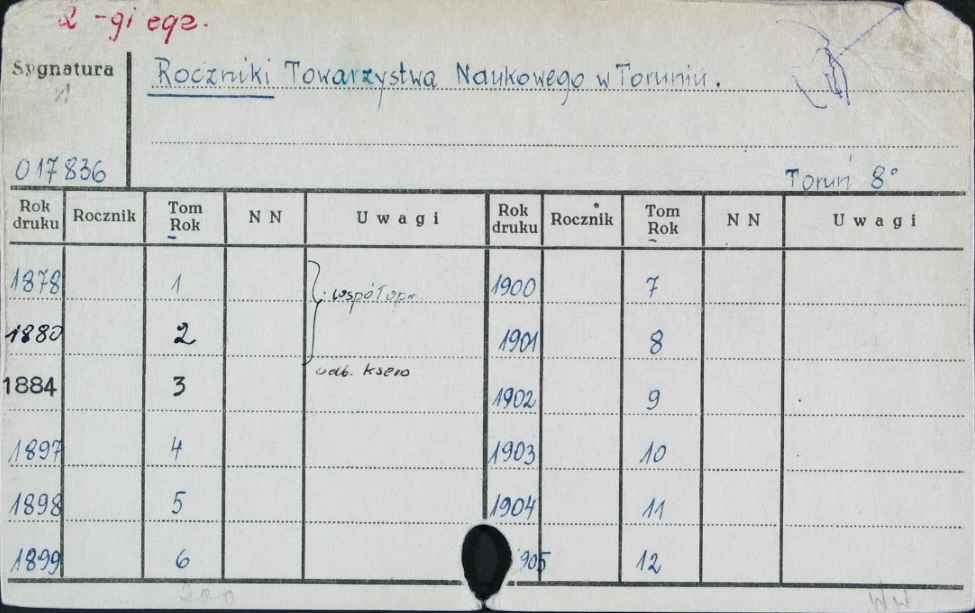 2-gi egz.
Sygnatura
Roczniki Towarzystwa Naukowego w Toruniu.
017836
Toruń 8°
Rok druku Rocznik Tom Rok NN Uwagi Rok druku Rocznik Tom Rok NN Uwagi
1878 1 współopr. 1900 7
1880 2 1901 8
1884 3 odb. ksero 1902 9
1897 4 1903 10
1898 5 1904 11
1899 6 905 12
WW